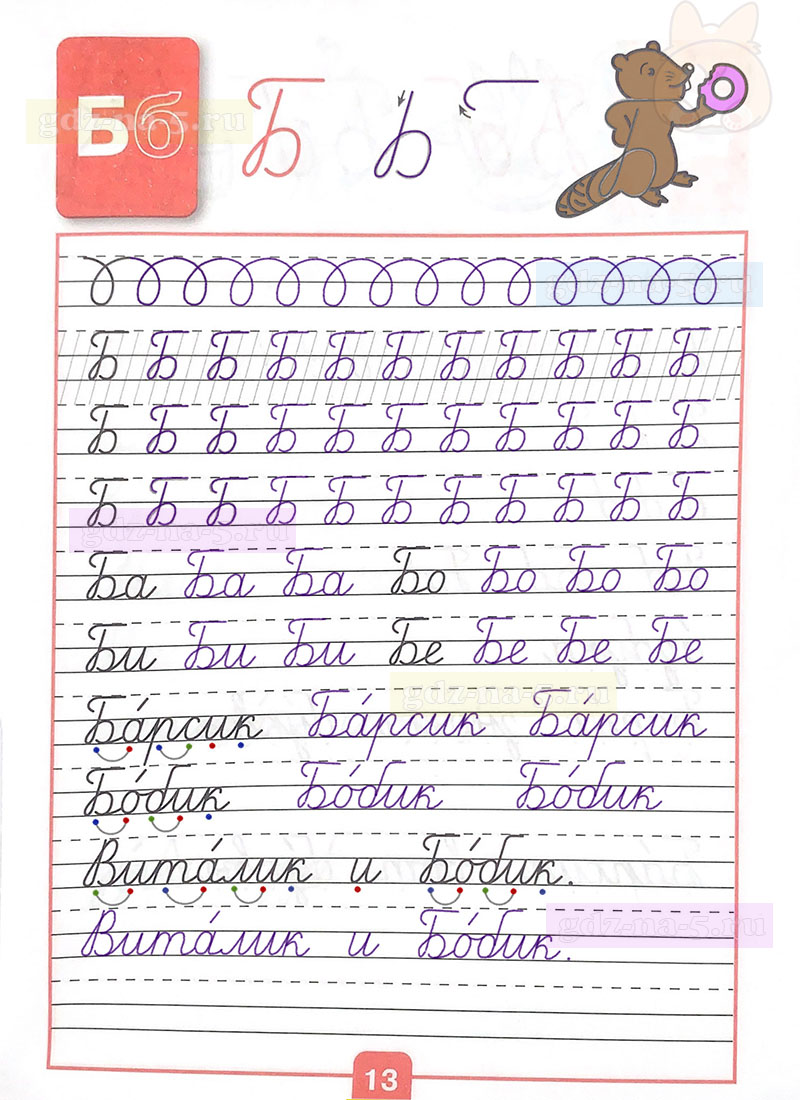 Бб Б
gdz-na-5.ru
gdz-na-5.ru
Б Б Б Б Б Б Б Б Б Б Б
Б Б Б Б Б Б Б Б Б Б Б
Б Б Б Б Б Б Б Б Б Б Б
gdz-na-5.ru
Ба Ба Ба Бо Бо Бо Бо
Би Би Би Бе Бе Бе Бе
gdz-na-5.ru
Ба́рсик Ба́рсик Ба́рсик
Бо́бик Бо́бик Бо́бик
Вита́лик и Бо́бик.
Вита́лик и Бо́бик.
gdz-na-5.ru
13